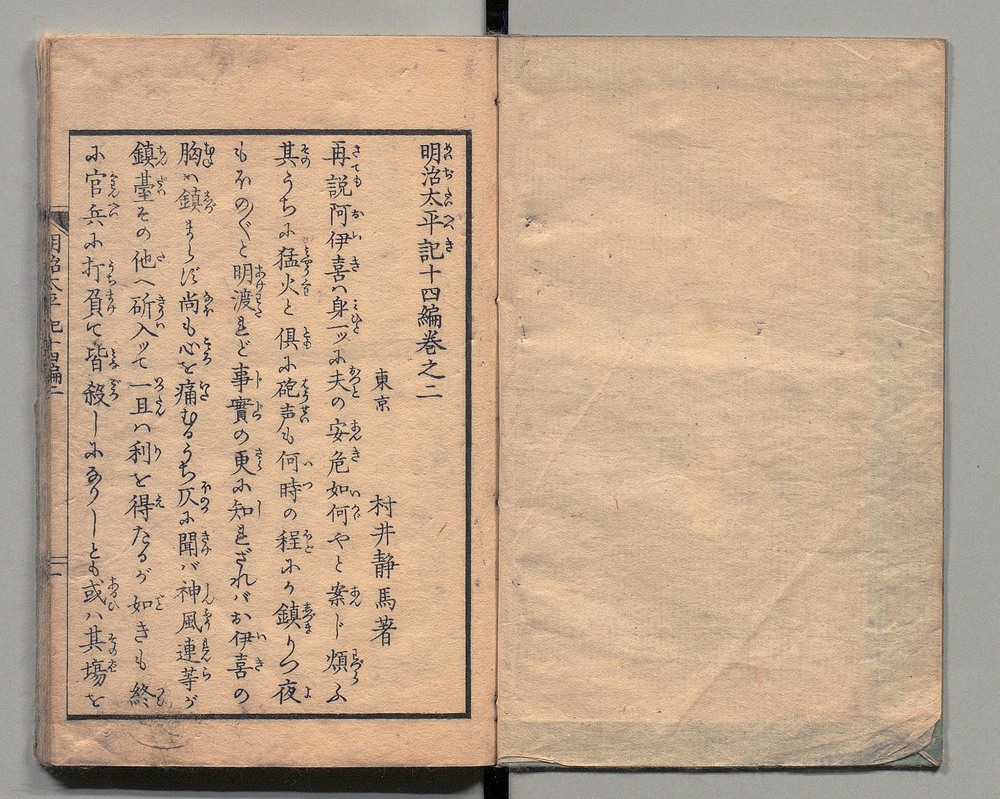 明治太平記十四編巻之二
東京
村井静馬著
再説阿伊喜ハ身一ツに夫の安危如何やと案じ煩ふ
其うちに猛火と倶に砲声も何時の程にか鎮りつ夜
もほの〴〵と明渡れど事實の更に知れざれバお伊喜の
胸ハ鎮まらず尚も心を痛むるうち仄に聞バ神風連等が
鎮臺その他へ斫入ッて一旦ハ利を得たるが如きも終
に官兵に打負て皆殺しになりしとも或ハ其塲を
明治太平記十四編二
一